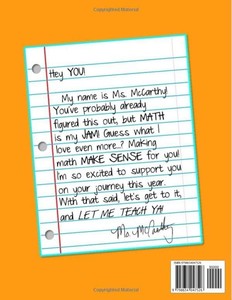 Hey YOU!
My name is Ms. McCarthy!
You've probably already
figured this out, but MATH
is my JAM! Guess what I
love even more..? Making
math MAKE SENSE for you!
I'm so excited to support you
on your journey this year.
With that said, let's get to it,
and LET ME TEACH YA!
Ms. McCarthy